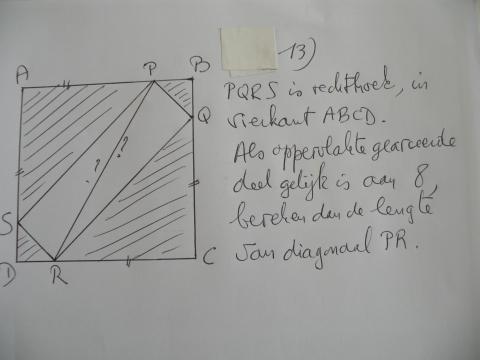 13)
A
P
B
PQRS is rechthoek, in
vierkant ABCD.
Q
Als oppervlakte gearceerde
? ?
deel gelijk is aan 8,
S
bereken dan de lengte
van diagonaal PR.
D
R
C